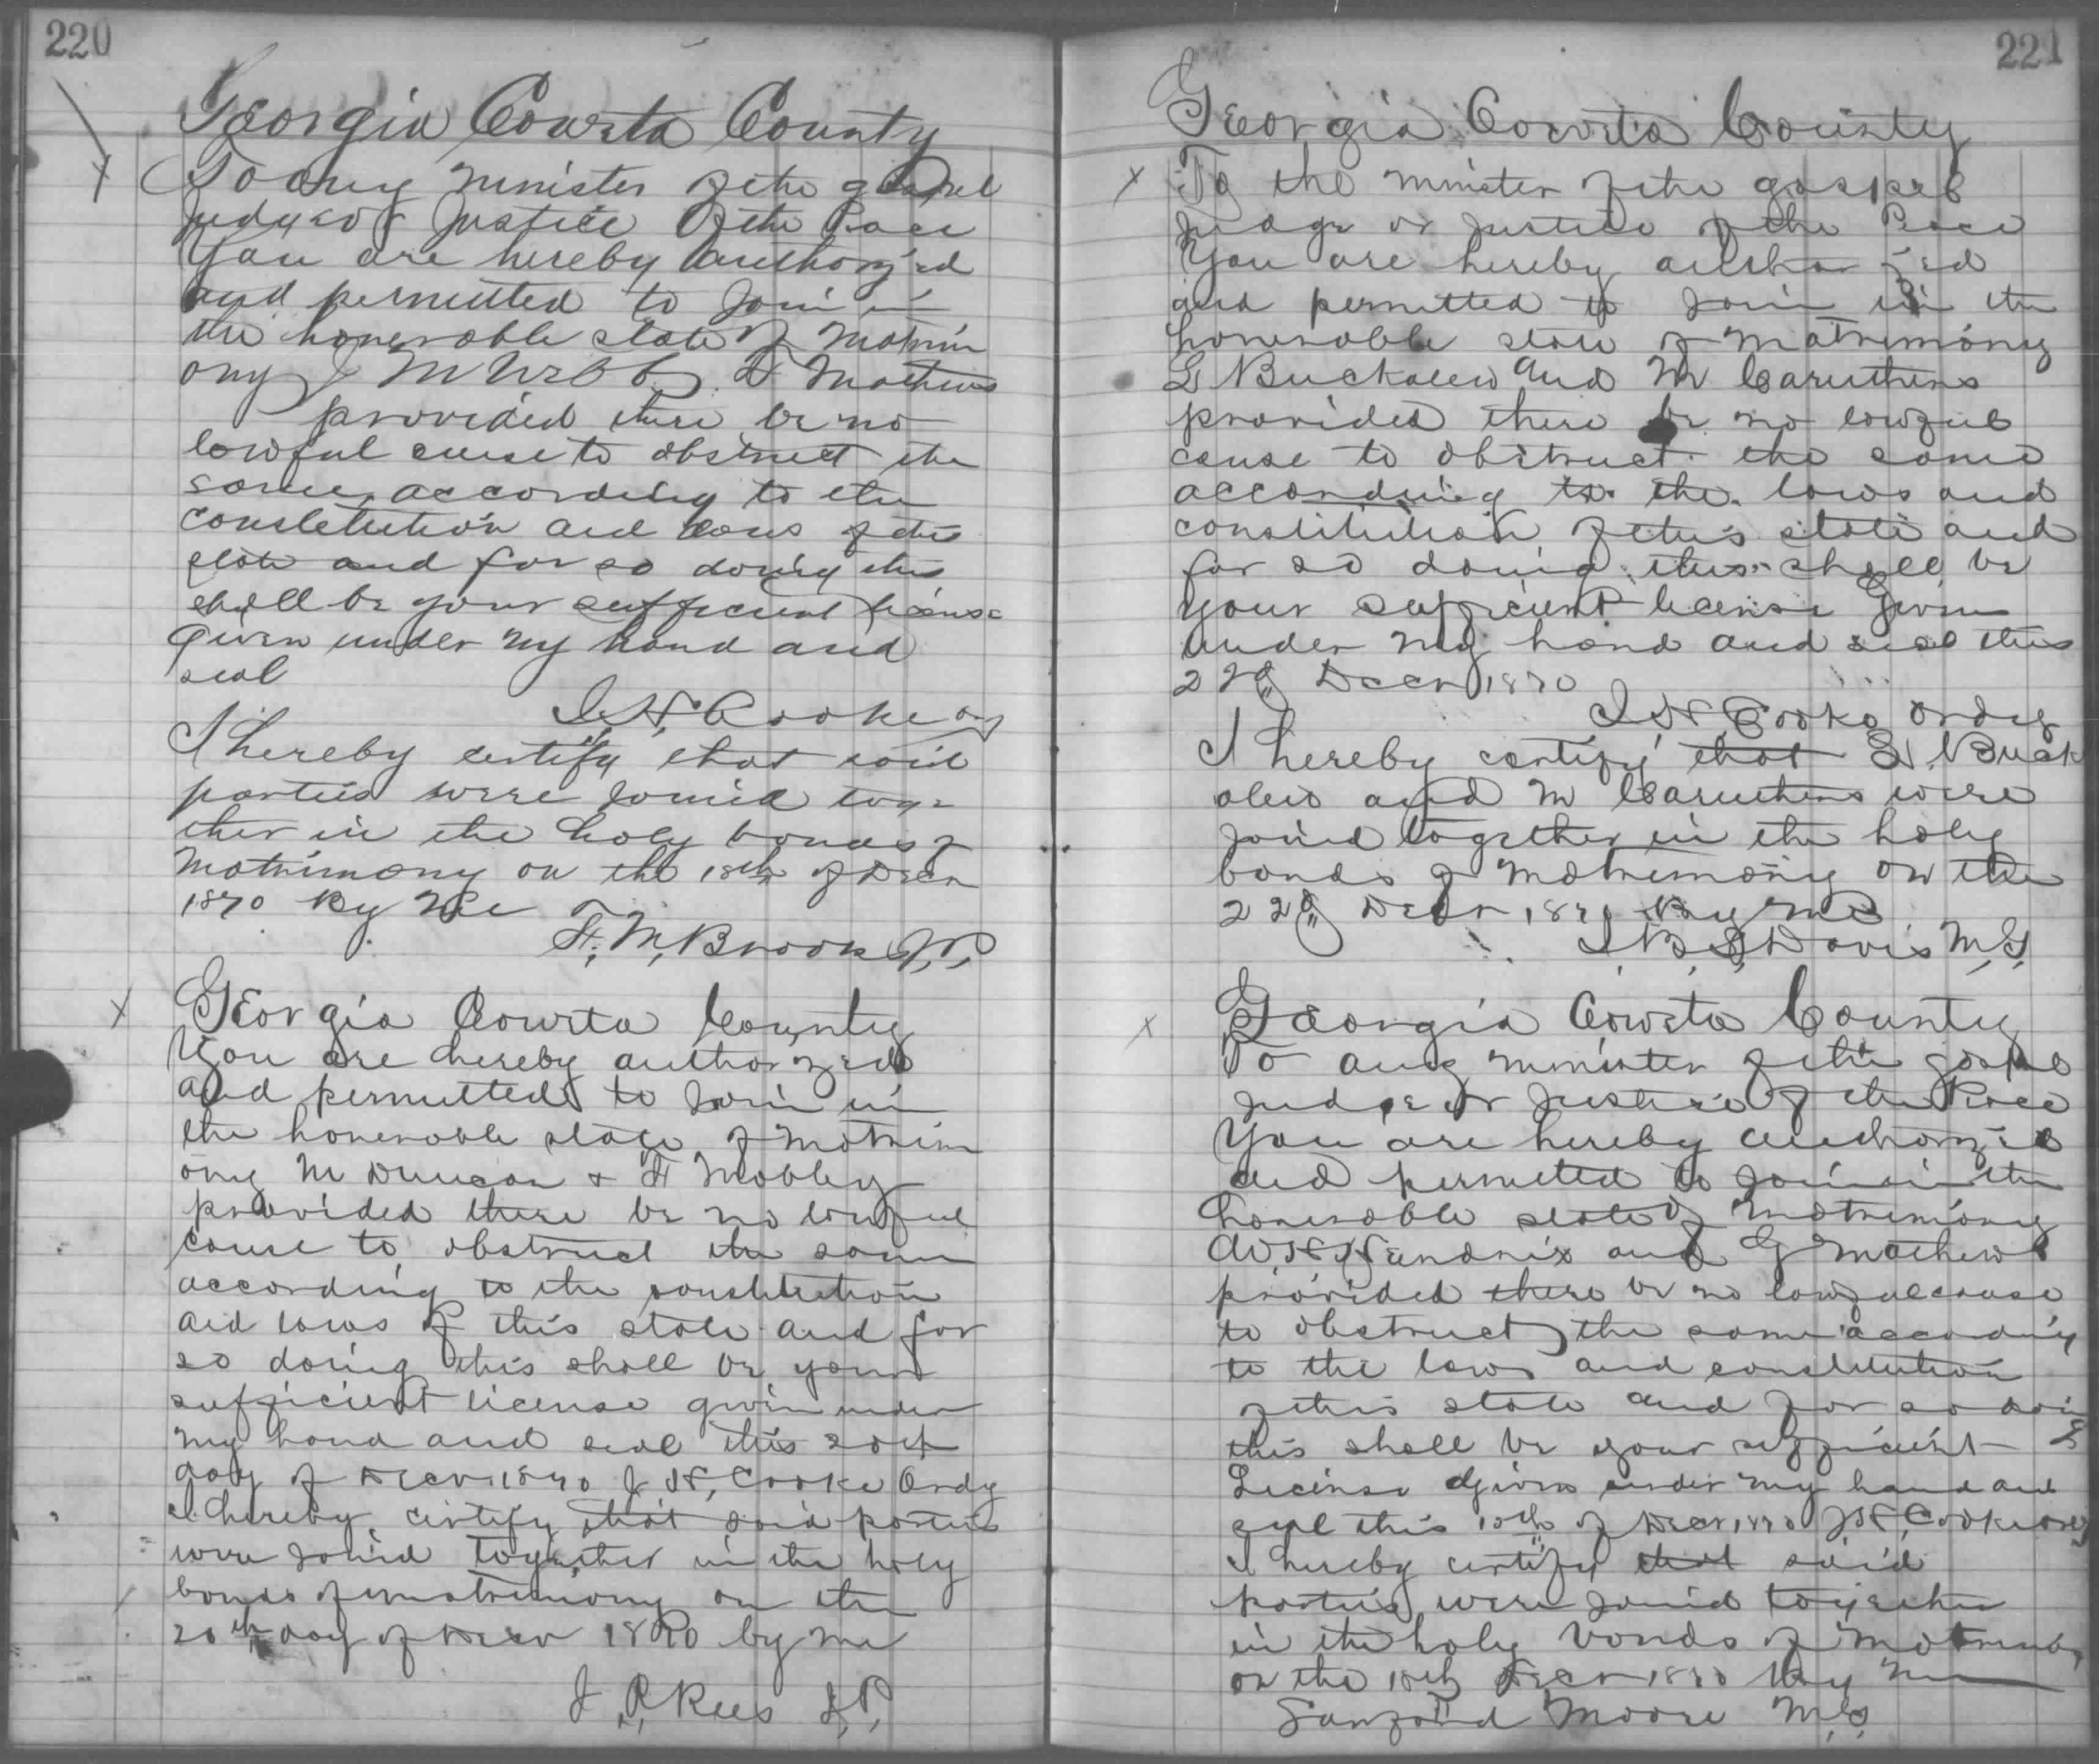 220
Georgia Coweta County
To any minister of the gospel
Judge or Justice of the Peace
You are hereby authorized
and permitted to Join in
the honerable state of Matrim
ony J M Webb & Mathews
provided there be no
lawful cause to obstruct the
same, according to the
constitution and laws of this
state and for so doing this
shall be your sufficient license
Given under my hand and
seal
J. H. Cooke Ordy
I hereby certify that said
parties were Joined toge
ther in the holy bonds of
Matrimony on the 18th of Decr
1870 By Me
F. M, Brooks J, P,
Georgia Coweta County
You are hereby authorized
and permitted to Join in
the honerable state of Matrim
ony M Duncan & F Mobley
provided there be no lawful
cause to obstruct the same
according to the constitution
and laws of this state and for
so doing this shall be your
sufficient license given under
my hand and seal this 20th
day of Decr 1870 J H, Cooke Ordy
I hereby certify that said parties
were Joined together in the holy
bonds of matrimony on the
20th day of Decr 1870 by me
J, P, Rees J, P,
221
Georgia Coweta County
To the minister of the gospel
Judge or Justice of the Peace
You are hereby authorized
and permitted to Join in the
honerable state of Matrimony
L Buckalew and M Caruthers
provided there be no lawful
cause to obstruct the same
according to the laws and
constitution of this state and
for so doing this shall be
your sufficient license Given
under my hand and seal this
22d Decr 1870
J H Cooke Ordy
I hereby certify that L. Buck
alew and M Caruthers were
Joined together in the holy
bonds of matrimony on the
22d Decr 1870 By me
J, B, S, Davis M, G,
Georgia Coweta County
To any minister of the gospel
Judge or Justice of the Peace
You are hereby authorized
and permitted to Join in the
honerable state of Matrimony
W, H, Hendrix and G Mathews
provided there be no lawful cause
to obstruct the same according
to the laws and constitution
of this state and for so doing
this shall be your sufficient
License Given under my hand and
seal this 18th of Decr 1870 J H, Cooke Ordy
I hereby certify that said
parties were Joined together
in the holy bonds of Matrimony
on the 18th Decr 1870 By me
Sanford Moore M, G,